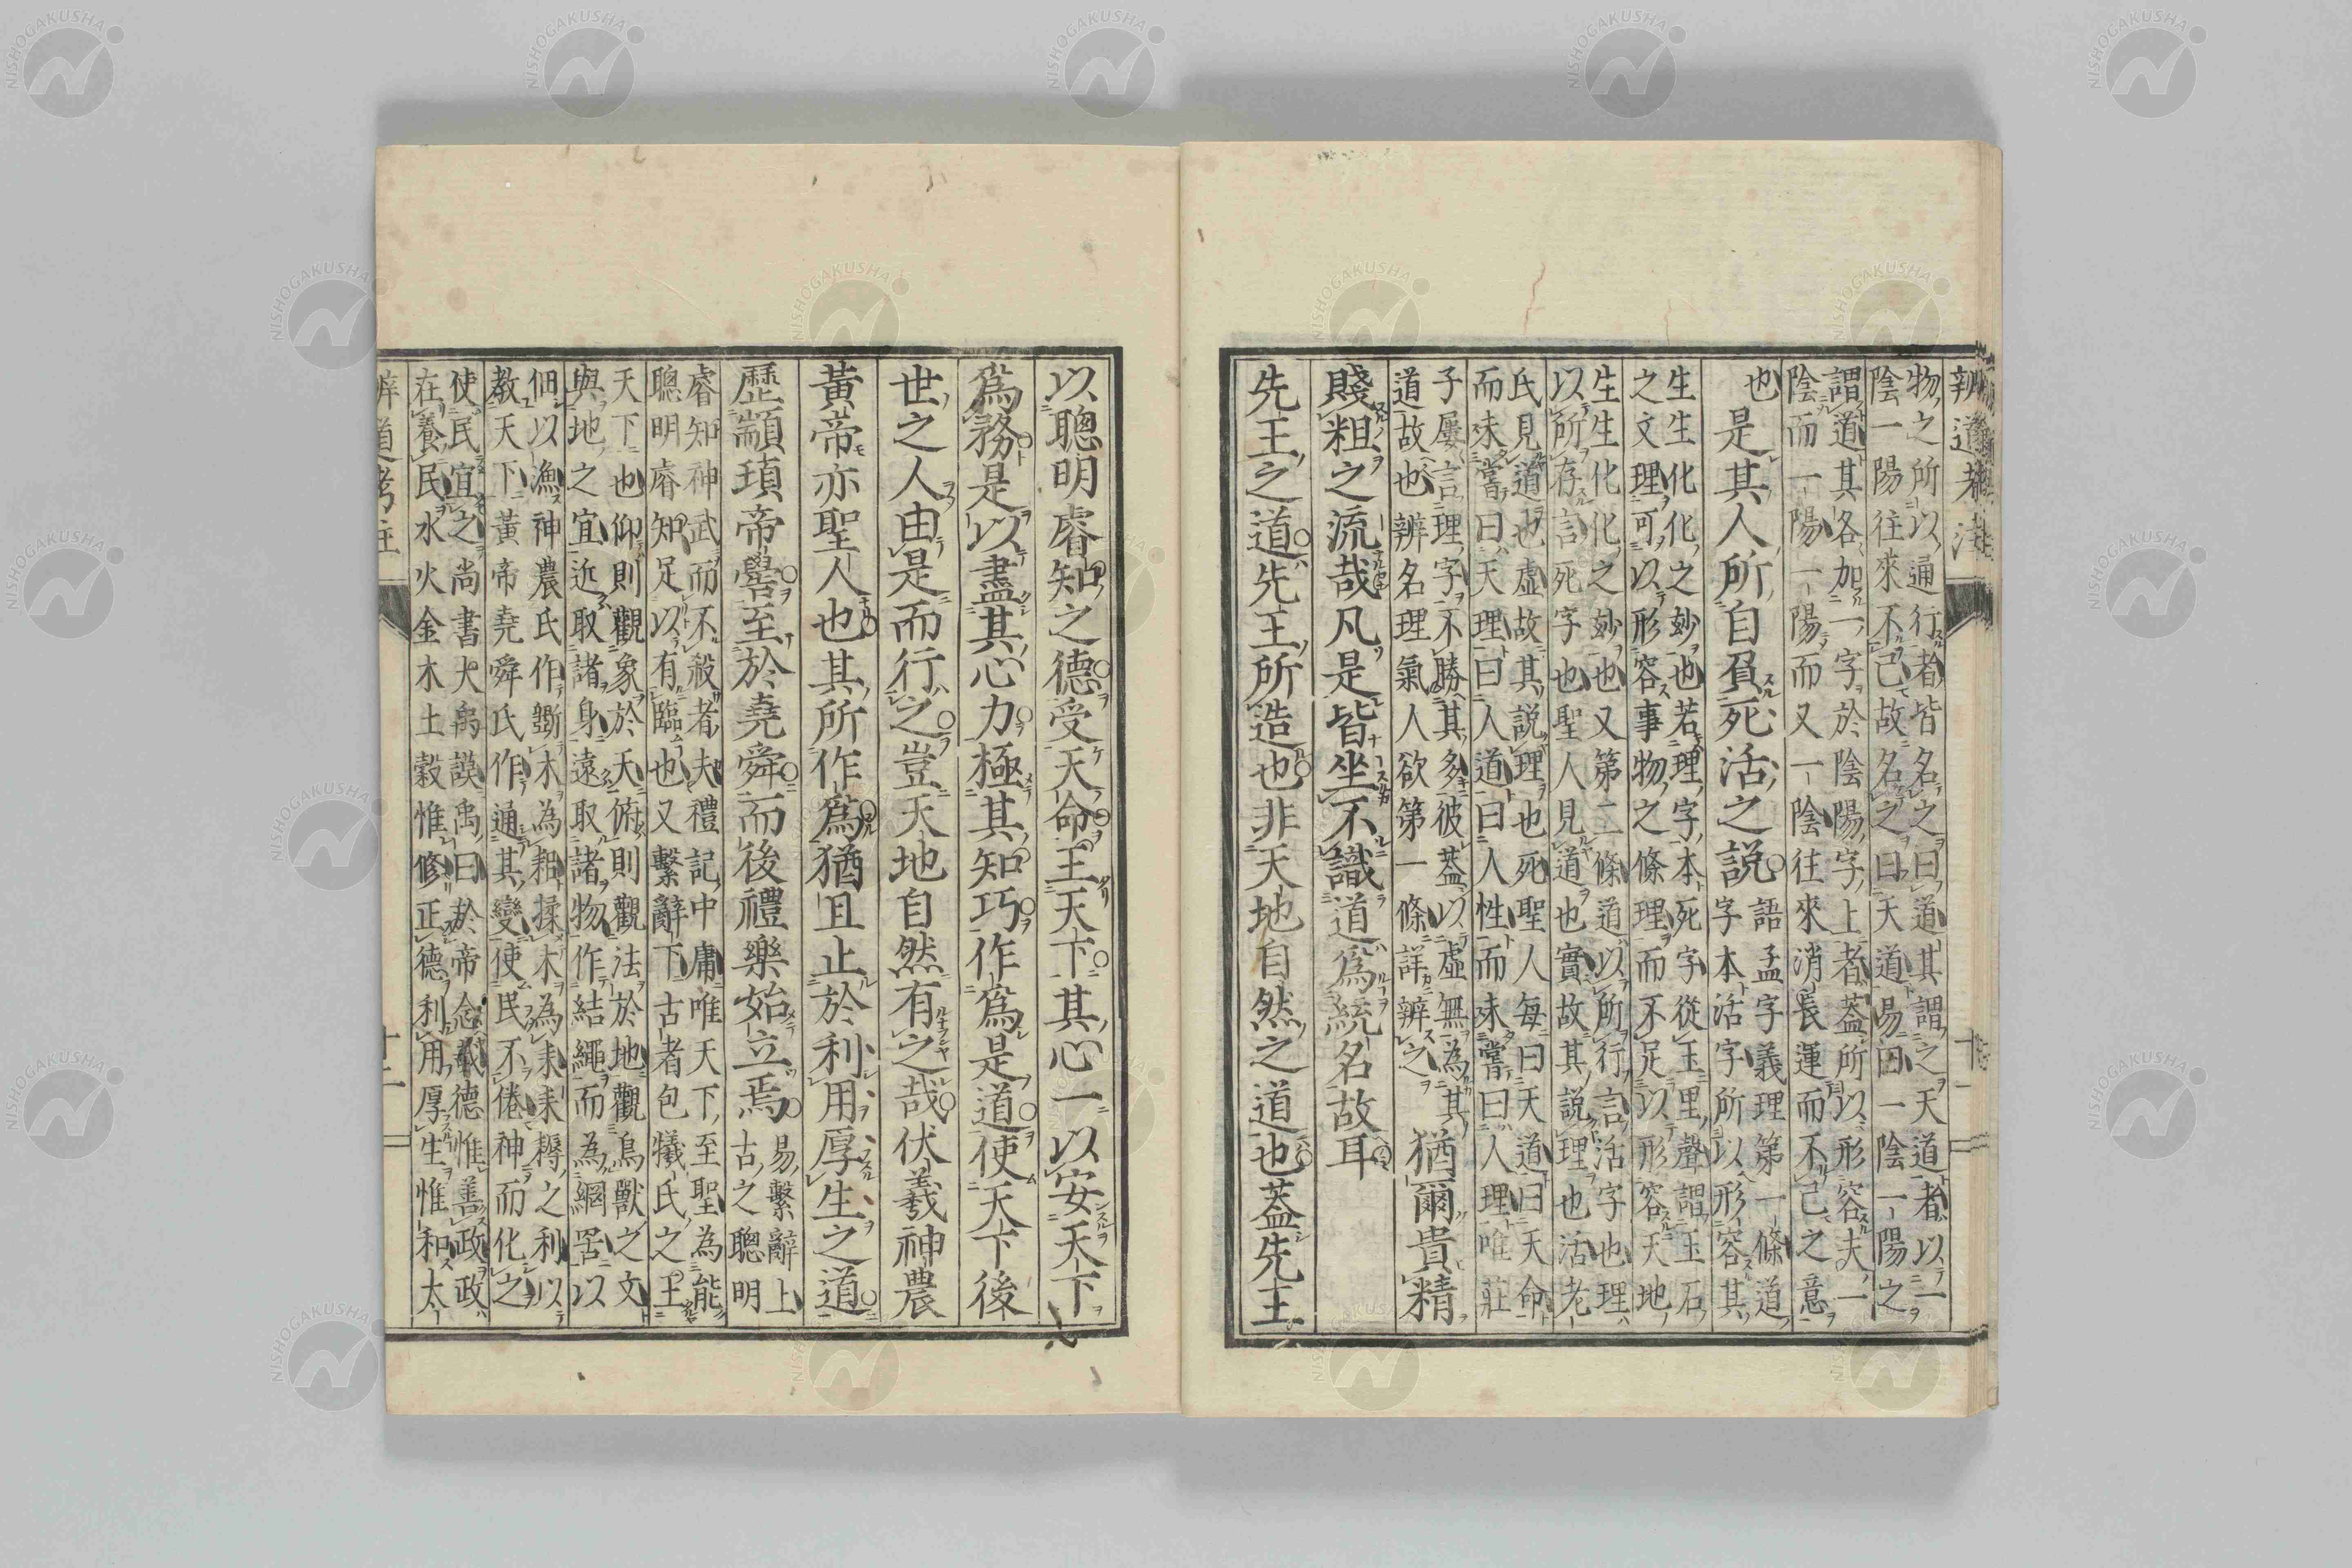 辨道考注
物之所以通行者皆名之曰道其謂之天道者以一
陰一陽往來不已故名之曰天道易曰一陰一陽之
謂道其各加一字於陰陽字上者蓋所以形容夫一
陰而一陽一陽而又一陰往來消長運而不已之意
也是其人所自負死活之說
語孟字義理第一條道
字本活字所以形容其
生生化化之妙也若理字本死字從玉里聲謂玉石
之文理可以形容事物之條理而不足以形容天地
生生化化之妙也又第二條道以所行言活字也理
以所存言死字也聖人見道也實故其說理也活老
氏見道也虛故其說理也死聖人每曰天道曰天命
而未嘗曰天理曰人道曰人性而未嘗曰人理唯莊
子屢言理字不勝其多彼蓋以虛無為其
道故也辨名理氣人欲第一條詳辨之
猶爾貴精
賤粗之流哉凡是皆坐不識道爲統名故耳
先王之道先王所造也非天地自然之道也蓋先王
以聰明睿知之德受天命王天下其心一以安天下
爲務是以盡其心力極其知巧作爲是道使天下後
世之人由是而行之豈天地自然有之哉伏羲神農
黃帝亦聖人也其所作爲猶且止於利用厚生之道
歷顓頊帝嚳至於堯舜而後禮樂始立焉
易繫辭上
古之聰明
睿知神武而不殺者夫禮記中庸唯天下至聖為能
聰明睿知足以有臨也又繫辭下古者包犧氏之王
天下也仰則觀象於天俯則觀法於地觀鳥獸之文
與地之宜近取諸身遠取諸物作結繩而為網罟以
佃以漁神農氏作斵木為耜揉木為耒耒耨之利以
教天下黃帝堯舜氏作通其變使民不倦神而化之
使民宜之尚書大禹謨禹曰於帝念哉德惟善政政
在養民水火金木土穀惟修正德利用厚生惟和太
辨道考注
十二
NISHOGAKUSHA